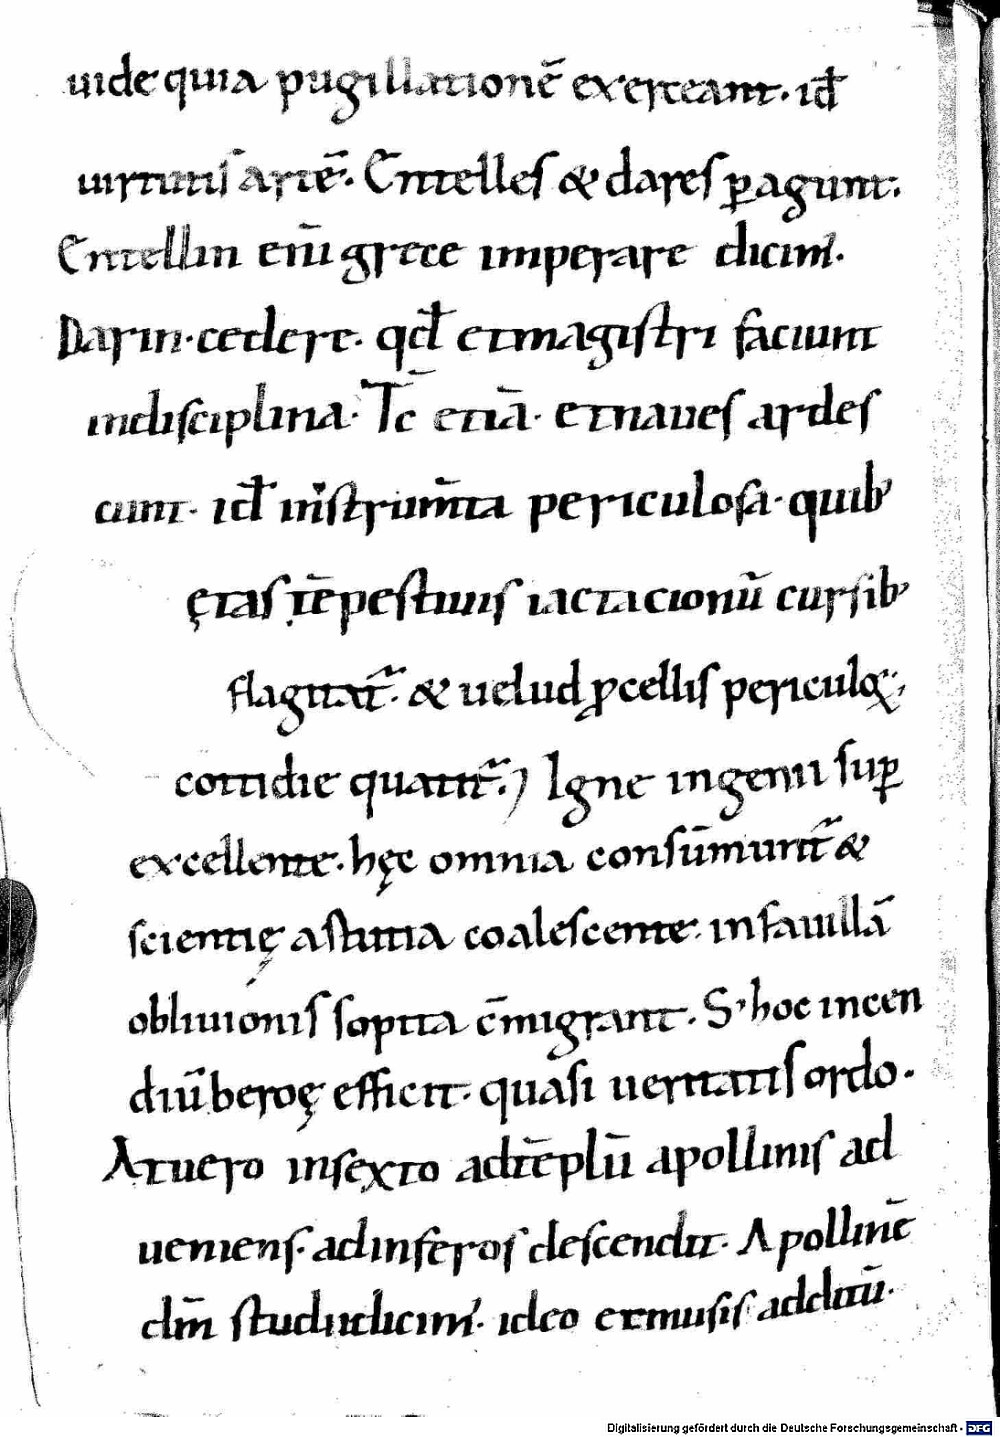 uide quia pugillationē exerceant. id̄
uirtutis artē. Entelles & dares ꝑagunt.
Entellin eni̅ grece imperare dicim̕.
Darin. cedere. qđ et magistri faciunt
in disciplina. Tc̄ etiā. et naues ardes
cunt. id̄ instrum̄ta periculosa. quib̕
ętas tēpestiuis iactacionū cursib̕
flagitat᷑. & uelud ꝓcellis periculoꝝ;
cottidie quatit᷑. Igne ingenii suꝑ
excellente. hęc omnia consūmunt᷑ &
scientię astutia coalescente. in fauillā
obliuionis sopita c̄migrant. S; hoc incen
diū beroę efficit. quasi ueritatis ordo.
At uero in sexto ad tēplū apollinis ad
ueniens. ad inferos descendit. Apollinē
dm̄ studii dicim̕. ideo et musis additū.
Digitalisierung gefördert durch die Deutsche Forschungsgemeinschaft - DFG